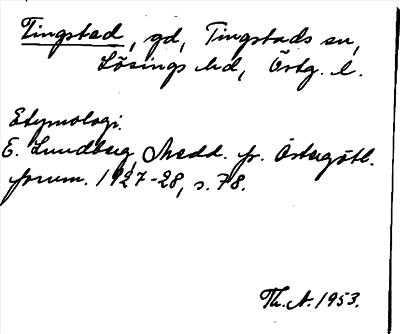 Tingstad, gd, Tingstads sn,
Lösings hd, Östg. l.
Etymologi.
E. Lundberg, Medd. fr. Östergötl.
fornm. 1927-28, s. 78.
Th. A. 1953.